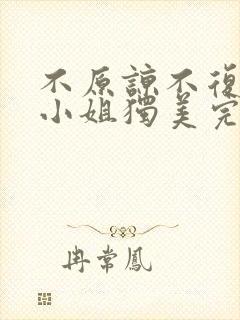 不原諒不復
小姐獨美完
冉常鳳